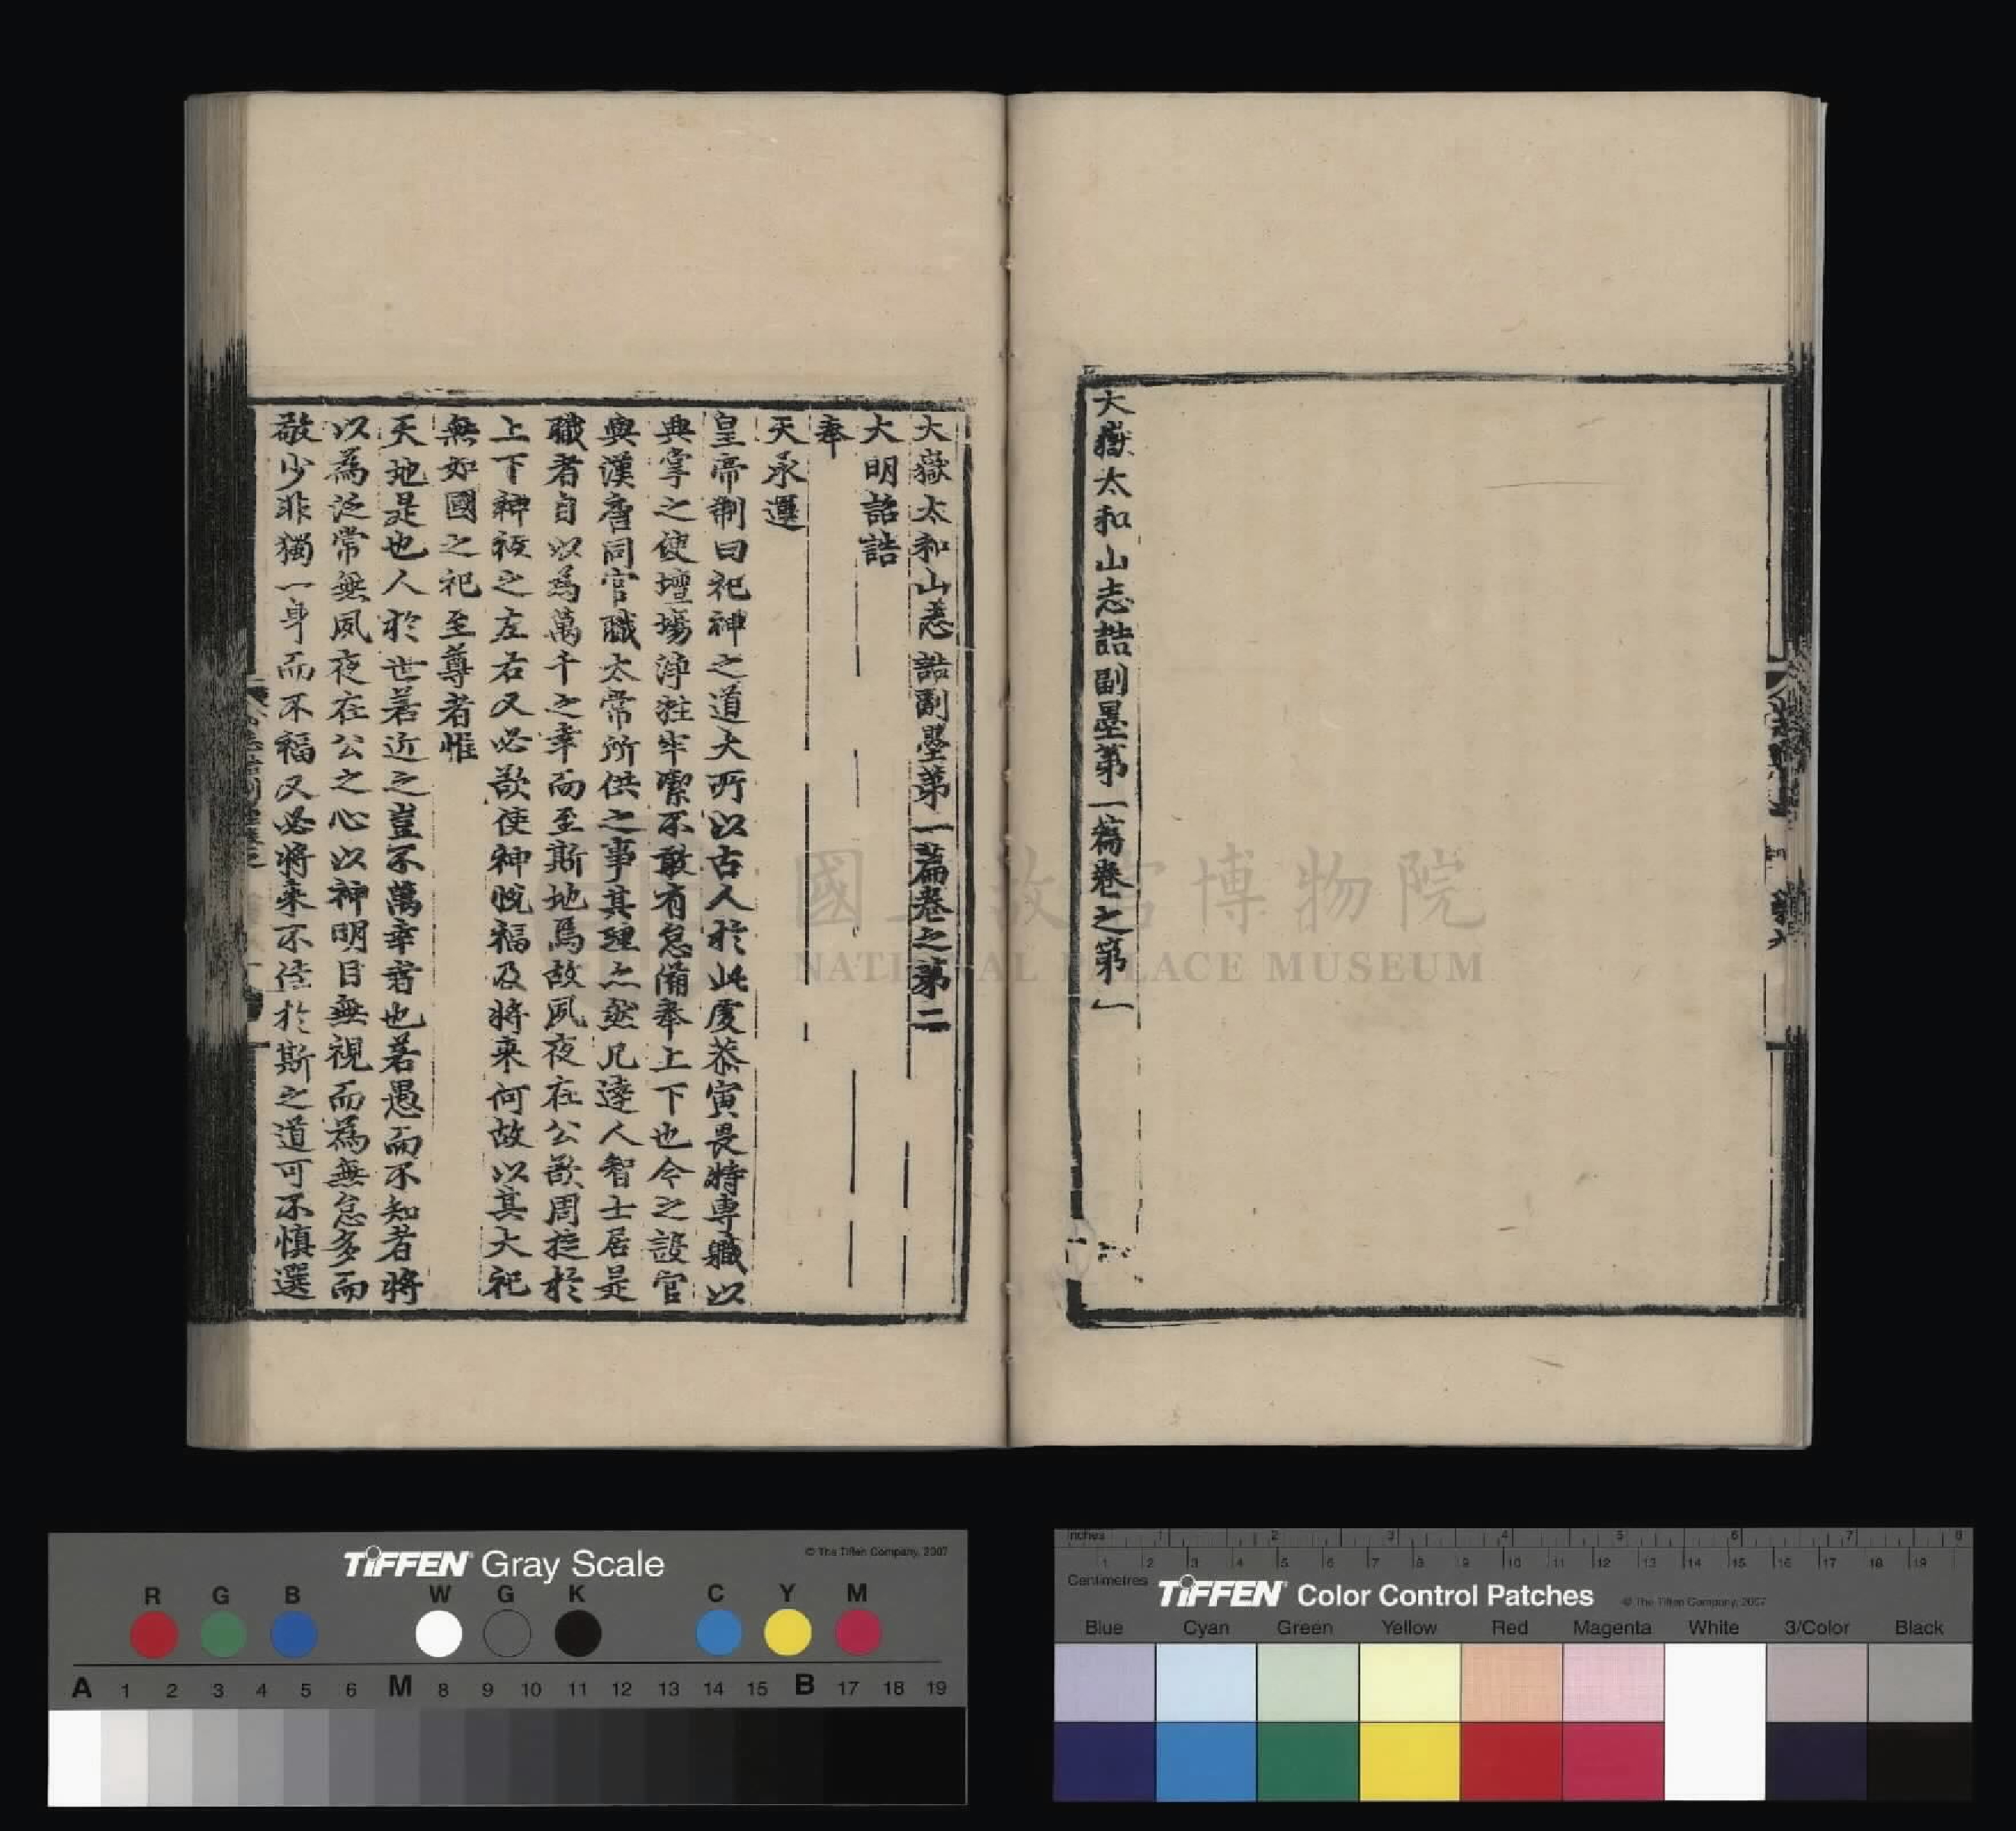 大嶽太和山志誥副墨第一篇卷之第一
大嶽太和山志誥副墨第一篇卷之第二
大明詔誥
奉
天承運
皇帝制曰祀神之道大所以古人於此虔恭寅畏特專職以
典掌之使壇場淨牲牢潔不敢有怠備奉上下也今之設官
與漢唐同官職太常所供之事其理亦然凡達人智士居是
職者自以為萬千之幸而至斯地焉故夙夜在公欲周旋於
上下神祇之左右又必欲使神悅福及將來何故以其大祀
無如國之祀至尊者惟
天地是也人於世若近之豈不萬幸者也若愚而不知者將
以為泛常無夙夜在公之心以神明目無視而為無怠多而
敬少非獨一身而不福又必將來不佳於斯之道可不慎選
國立故宮博物院
NATIONAL PALACE MUSEUM
TIFFEN Gray Scale
© The Tiffen Company, 2007
R G B W G K C Y M
A 1 2 3 4 5 6 M 8 9 10 11 12 13 14 15 B 17 18 19
Inches 1 2 3 4 5 6 7 8
1 2 3 4 5 6 7 8 9 10 11 12 13 14 15 16 17 18 19
Centimetres
TIFFEN Color Control Patches
© The Tiffen Company, 2007
Blue Cyan Green Yellow Red Magenta White 3/Color Black